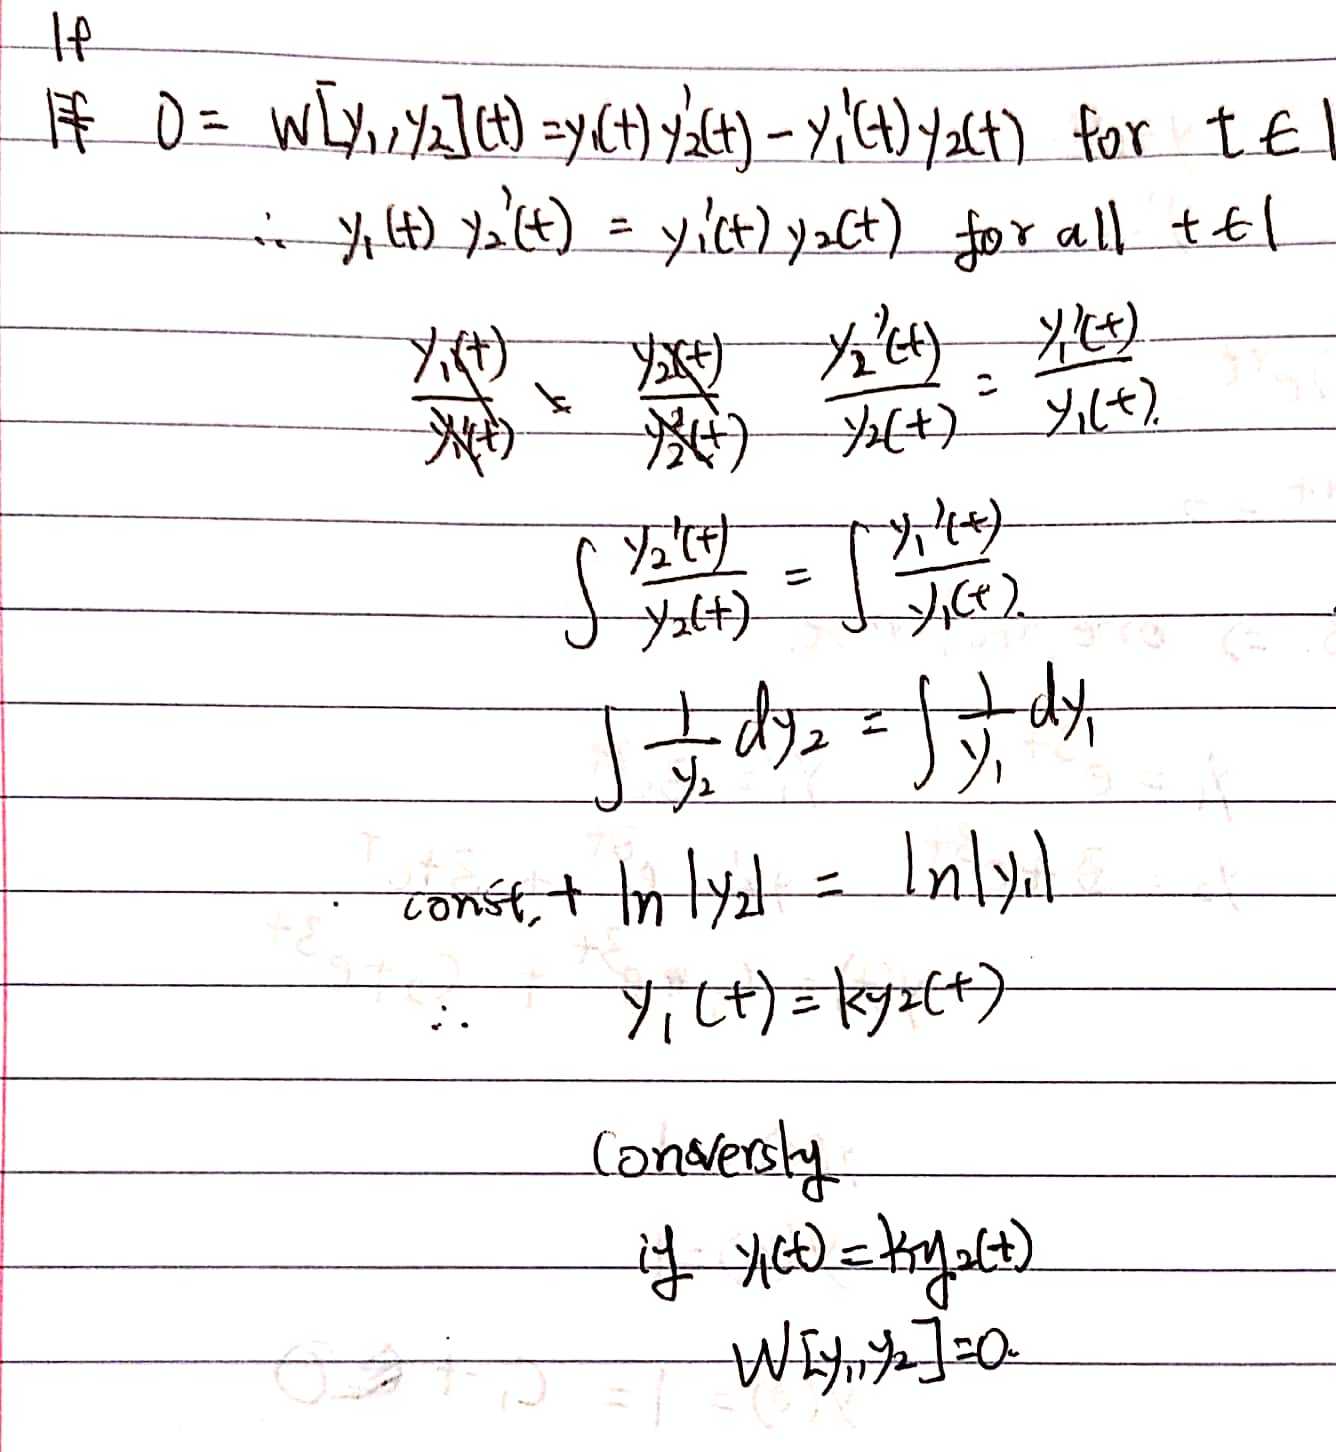 If
If 0 = W[y₁, y₂](t) = y₁(t) y₂'(t) − y₁'(t) y₂(t) for t ∈ I
∴ y₁(t) y₂'(t) = y₁'(t) y₂(t) for all t ∈ I
y₂'(t)/y₂(t) = y₁'(t)/y₁(t).
∫ y₂'(t)/y₂(t) = ∫ y₁'(t)/y₁(t).
∫ 1/y₂ dy₂ = ∫ 1/y₁ dy₁
const. + ln |y₂| = ln|y₁|
∴ y₁(t) = ky₂(t)
Conversly
if y₁(t) = ky₂(t)
W[y₁, y₂] = 0.